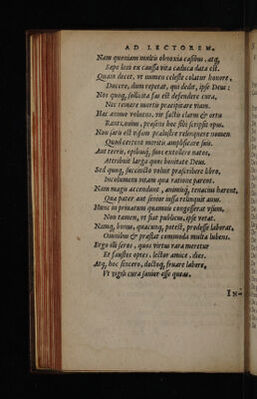 AD LECTOREM.
Nam quoniam multis obnoxia casibus, atq,
Sæpe levi ex caussa vita caduca data est.
Quam docet, vt numen celeste colatur honore,
Ducere, dum repetat, qui dedit, ipse Deus:
Nos quoq, sollicita fas est defendere cura,
Nec temere mortis præcipitare viam.
Hac animus voluens, vir factis clarus & ortu
Rantzouius, præsens hoc sibi scripsit opus.
Non satis est visum præclustre relinquere nomen
Quod certent meritis amplificare suis.
Aut terris, opibusq, suos extollere natos,
Attribuit larga quas bonitate Deus.
Sed quoq, succincto voluit præscribere libro,
Incolumem vitam qua ratione parent.
Nam magis accendunt, animisq, tenacius hærent,
Quæ pater aut senior iussa relinquit auus.
Hunc in priuatum quamuis congesserat vsum,
Non tamen, vt fiat publicus, ipse vetat.
Namq, bonus, quacunq, potest, prodesse laborat,
Omnibus & præstat commoda multa lubens.
Ergo illi seros, quos virtus rara meretur
Et faustos optes, lector amice, dies.
Atq, hoc sincero, doctoq, fruare labore,
Vt vigili cura sanior esse queas.
IN-